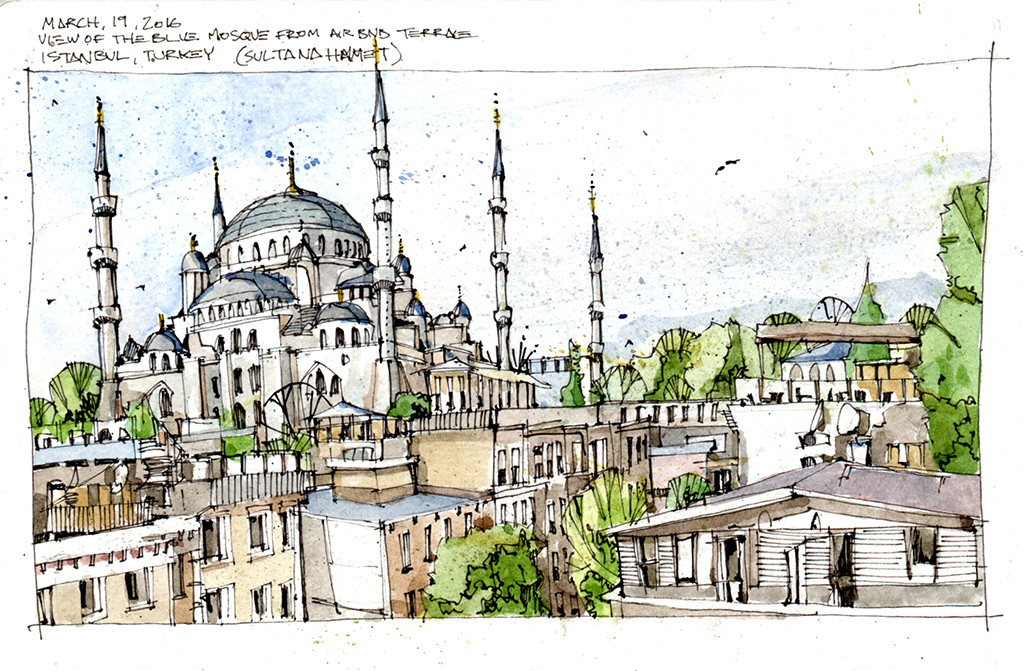 MARCH, 19, 2016
VIEW OF THE BLUE MOSQUE FROM AIRBNB TERRACE
ISTANBUL, TURKEY (SULTANAHAMET)